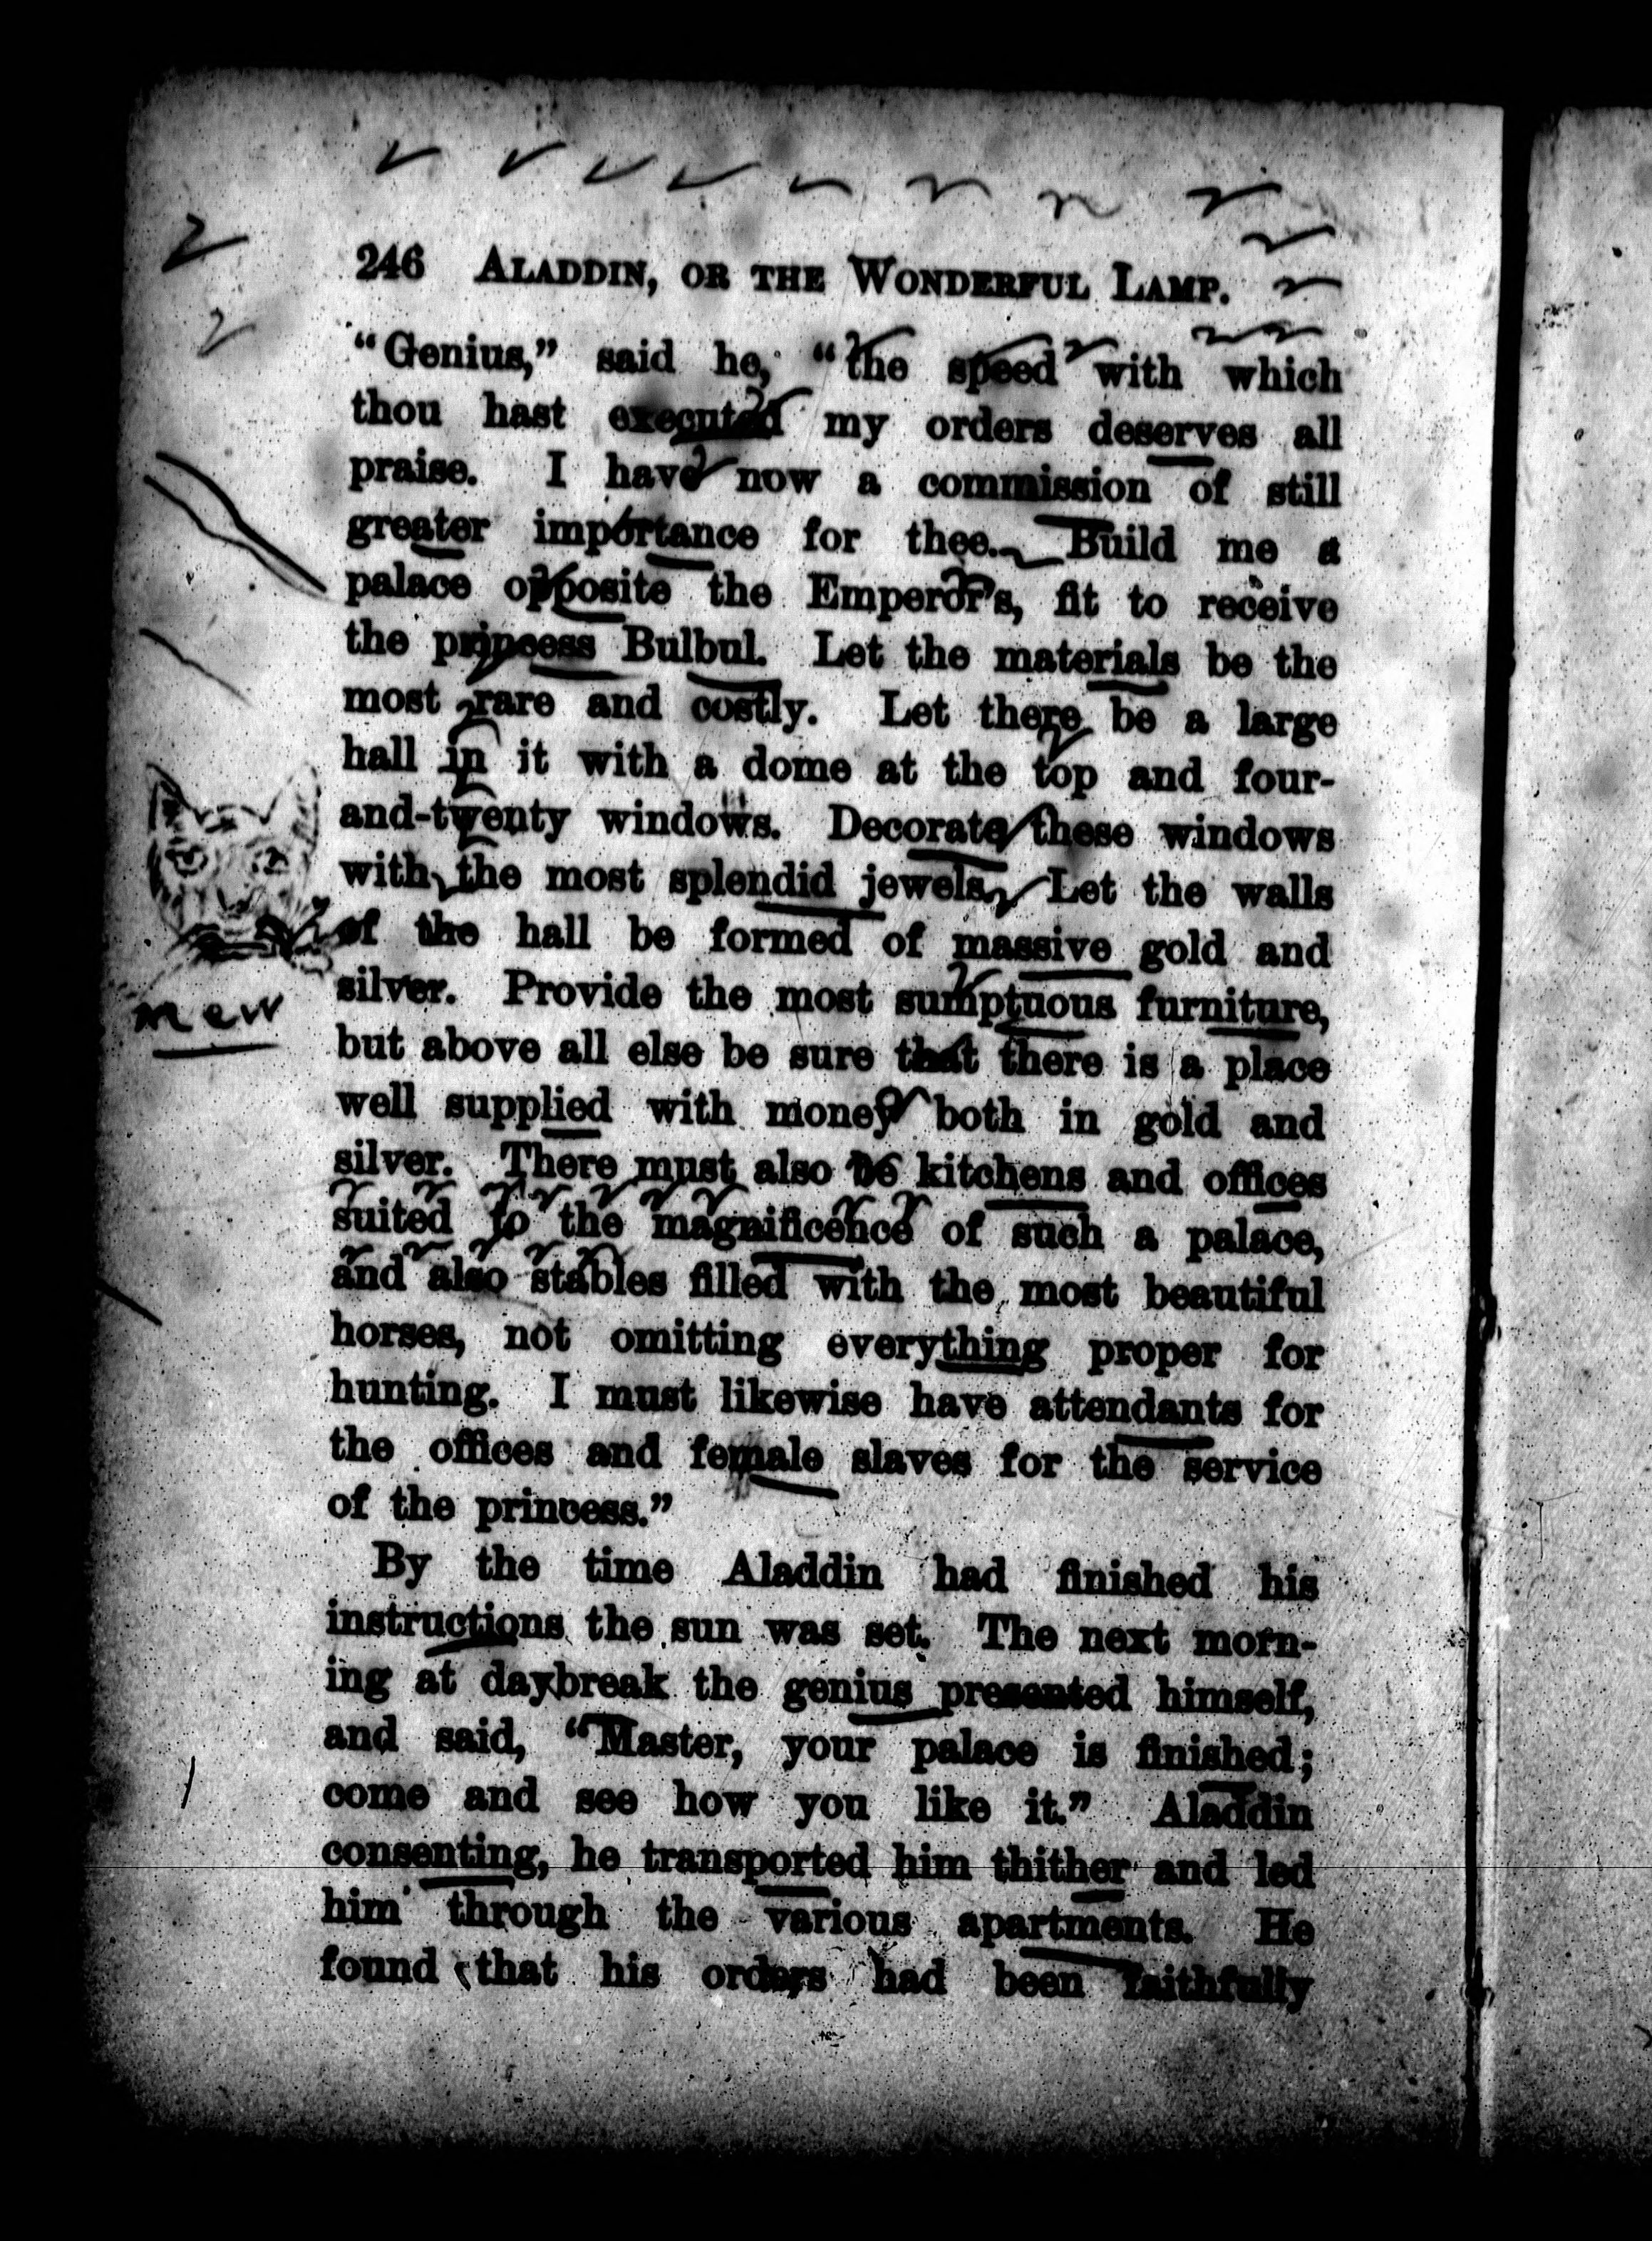 246 ALADDIN, OR THE WONDERFUL LAMP.
"Genius," said he, "the speed with which
thou hast executed my orders deserves all
praise. I have now a commission of still
greater importance for thee. Build me a
palace opposite the Emperor's, fit to receive
the princess Bulbul. Let the materials be the
most rare and costly. Let there be a large
hall in it with a dome at the top and four-
and-twenty windows. Decorate these windows
with the most splendid jewels. Let the walls
of the hall be formed of massive gold and
silver. Provide the most sumptuous furniture,
but above all else be sure that there is a place
well supplied with money both in gold and
silver. There must also be kitchens and offices
suited to the magnificence of such a palace,
and also stables filled with the most beautiful
horses, not omitting everything proper for
hunting. I must likewise have attendants for
the offices and female slaves for the service
of the princess."
By the time Aladdin had finished his
instructions the sun was set. The next morn-
ing at daybreak the genius presented himself,
and said, "Master, your palace is finished;
come and see how you like it." Aladdin
consenting, he transported him thither and led
him through the various apartments. He
found that his orders had been faithfully
mew